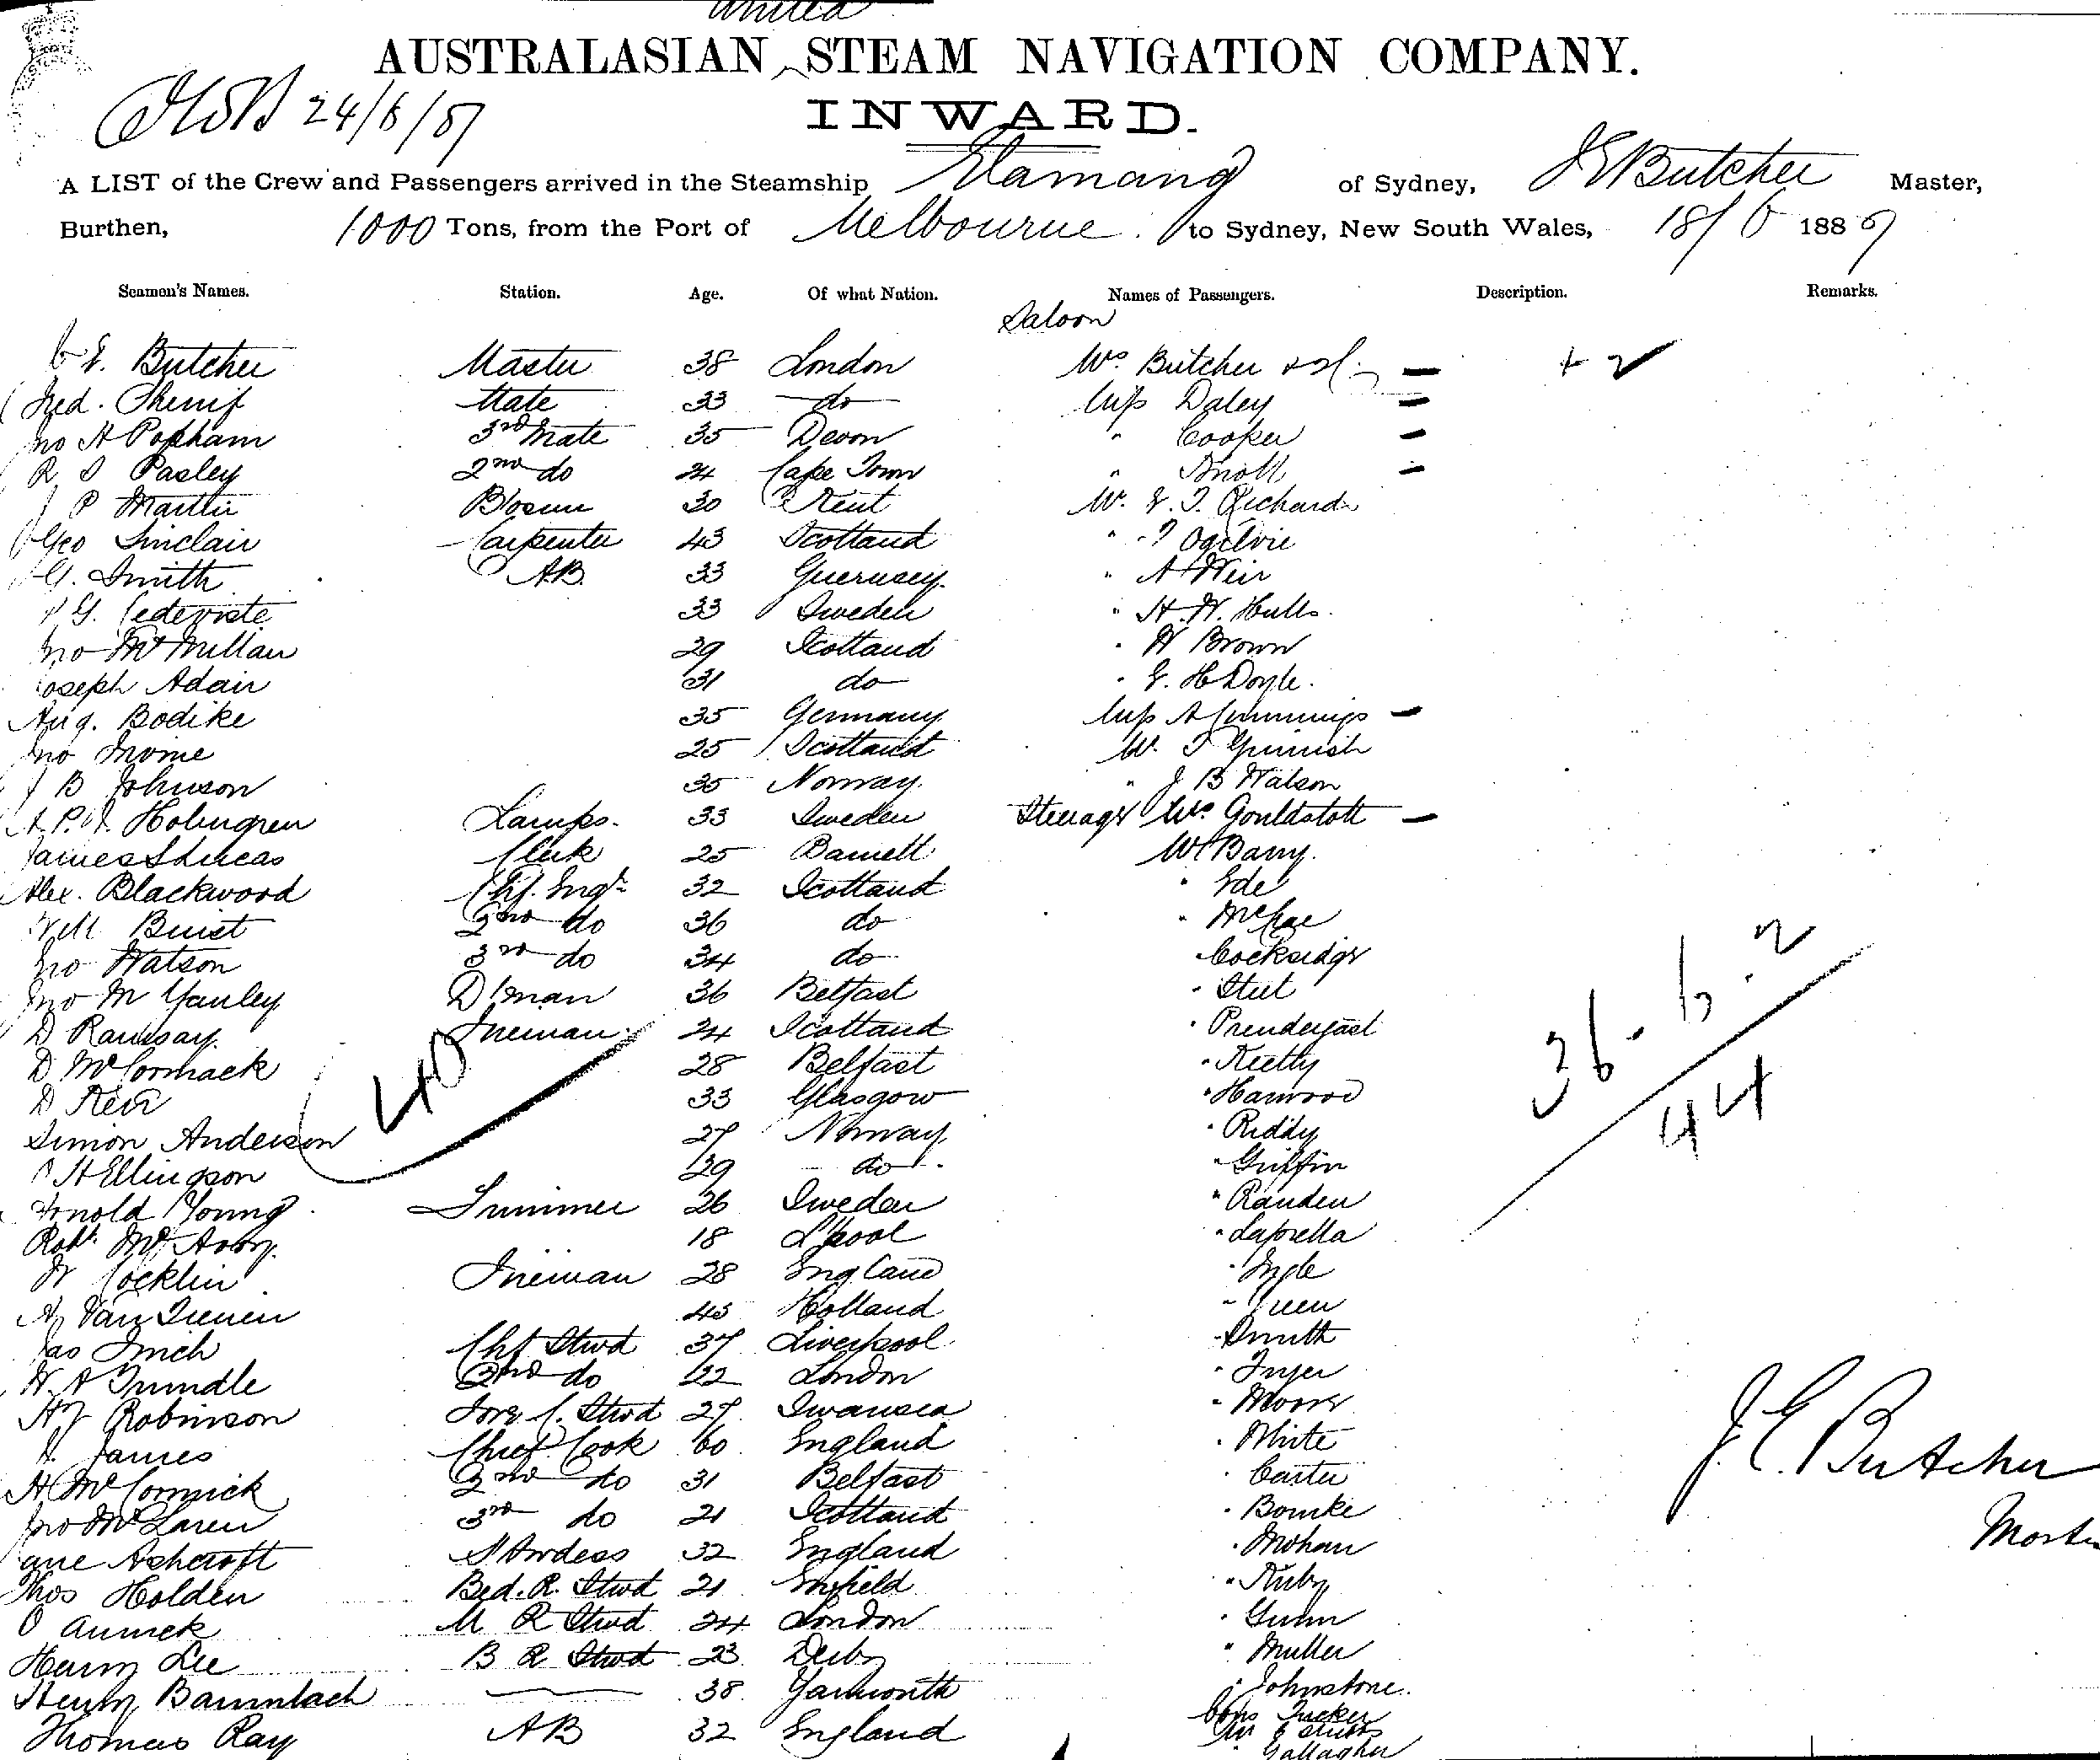 United
AUSTRALASIAN ‸ STEAM NAVIGATION COMPANY.
24/6/87
INWARD.
A LIST of the Crew and Passengers arrived in the Steamship Elamang of Sydney, J E Butcher Master,
Burthen, 1000 Tons, from the Port of Melbourne to Sydney, New South Wales, 18/6 1887
Seamen's Names. Station. Age. Of what Nation. Names of Passengers. Description. Remarks.
Saloon
E. Butcher Master 38 London Mrs Butcher + 2
Fred. Mate 33 do Miss Daley
Jno H Popham 3rd Mate 35 Devon " Cooper
R Pasley 2nd do 24 Cape Town " Knott
J P Martin Bosun 30 Kent Mr. Richards
Geo Sinclair Carpenter 43 Scotland " Ogilvie
G. Smith AB. 33 Guernsey " A Weir
G. 33 Sweden " H. W. Hulls.
Jno McMillan 29 Scotland " W Brown
Joseph Adair 31 do " E. H Doyle.
Aug. Bodike 35 Germany Miss A Cummings
Jno 25 Scotland Mr.
J B Johnson 35 Norway " J B Watson
Holmgren Lamps. 33 Sweden Steerage Mrs Gouldstott
James Lucas Clerk 25 Barnett Mr Barry.
Alex. Blackwood Chf. Engr 32 Scotland " Ede
Will Buist 2nd do 36 do " McRae
Jno Watson 3rd do 34 do " Cocksidge
Jno M Yauley D'man 36 Belfast " Steet
D Ramsay. Fireman 24 Scotland " Prendergast
D McCormack 28 Belfast " Kielty
D Keir 33 Glasgow " Harwood
Simon Anderson 27 Norway " Riddy
H Ellingson 29 do " Griffin
Young Trimmer 26 Sweden " Rauden
Robt. McAvoy. 18 L'pool " Laprella
W Cocklin Fireman 28 England " Ingle
Van 43 Holland " Green
Jas Inch Chf Stwd 37 Liverpool " Smith
W. A Trundle 2nd do 22 London " Fryer
H J Robinson Fore C. Stwd 27 Swansea " Moore
James Chief Cook 60 England " White
H McCormick 2nd do 31 Belfast " Carter
Jno McLaren 3rd do 21 Scotland " Bourke
Jane Ashcroft S'Ardess 32 England " Mohan
Thos Holden Bed. R. Stwd 21 Enfield " Ruby
O M R Stwd 24 London " Gunn
Henry Lee B R Stwd 23 Derby " Muller
Henry 38 Yarmouth " Johnstone.
Thomas Ray AB 32 England Tucker
Gallagher
40
36. 6. 2
44
J. E. Butcher
Master